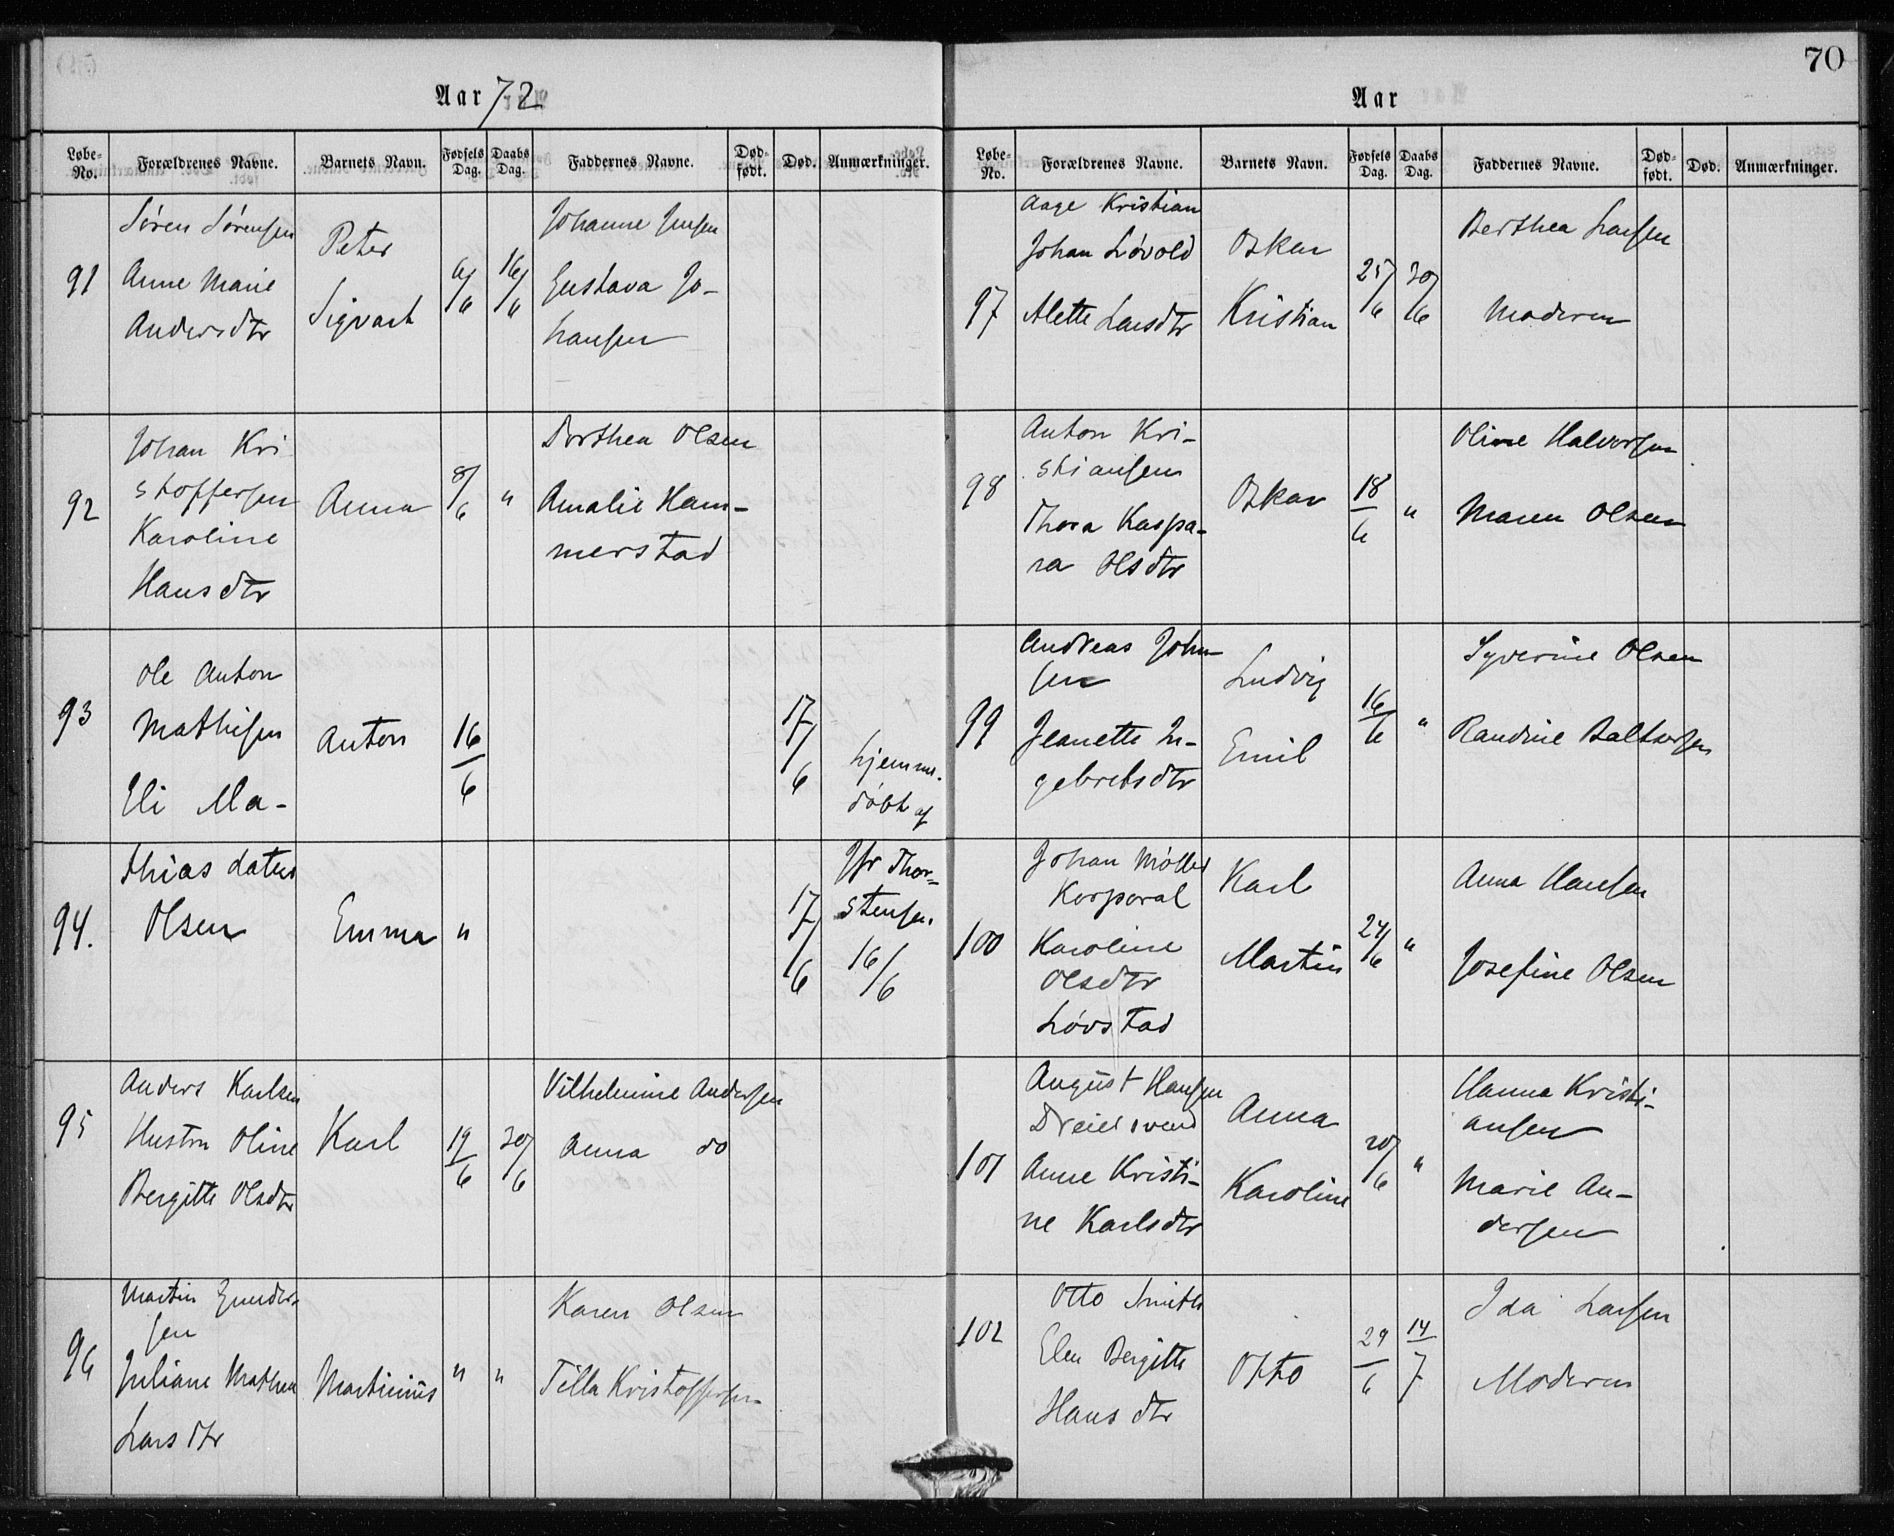 70
Aar 72
Løbe-No. Forældrenes Navne. Barnets Navn. Fødsels Dag. Daabs Dag. Faddernes Navne. Død-født. Død. Anmærkninger.
91
Søren Sørensen
Anne Marie
Andersdtr
Peter
Sigvart
6/6
16/6
Johanne Jensen
Gustava Jo-
hansen
92
Johan Kri
stoffersen
Karoline
Hansdtr
Anna
8/6
"
Dorthea Olsen
Amalie Ham-
merstad
93
Ole Anton
Mathisen
Eli Ma-
Anton
16/6
17/6
hjemme-
døbt af
94.
thias datter
Olsen
Emma
"
17/6
Jfr Thor-
stensen.
16/6
95
Anders Karlsen
Hustru Oline
Bergitte Olsdtr
Karl
19/6
30/6
Vilhelmine Andersen
Anna do
96
Martin Gunder-
sen
Juliane Mathea
Larsdtr
Martinius
"
"
Karen Olsen
Tilla Kristoffersen
Aar
Løbe-No. Forældrenes Navne. Barnets Navn. Fødsels Dag. Daabs Dag. Faddernes Navne. Død-født. Død. Anmærkninger.
97
Aage Kristian
Johan Løvold
Alette Larsdtr
Oskar
Kristian
25/6
30/6
Berthea Larsen
Moderen
98
Anton Kri-
stiansen
Thora Kaspa-
ra Olsdtr
Oskar
18/6
"
Oline Halvorsen
Maren Olsen
99
Andreas John
sen
Jeanette In-
gebretsdtr
Ludvig
Emil
16/6
"
Syverine Olsen
Randine Baltsersen
100
Johan Møller
Korporal
Karoline
Olsdtr
Løvstad
Karl
Martin
24/6
"
Anna Hansen
Josefine Olsen
101
August Hansen
Dreiersvend
Anne Kristi-
ne Karlsdtr
Anna
Karoline
20/6
"
Hanna Kristi-
ansen
Marie An-
dersen
102
Otto Smith
Elen Bergitte
Hansdtr
Otto
29/6
14/7
Ida Larsen
Moderen